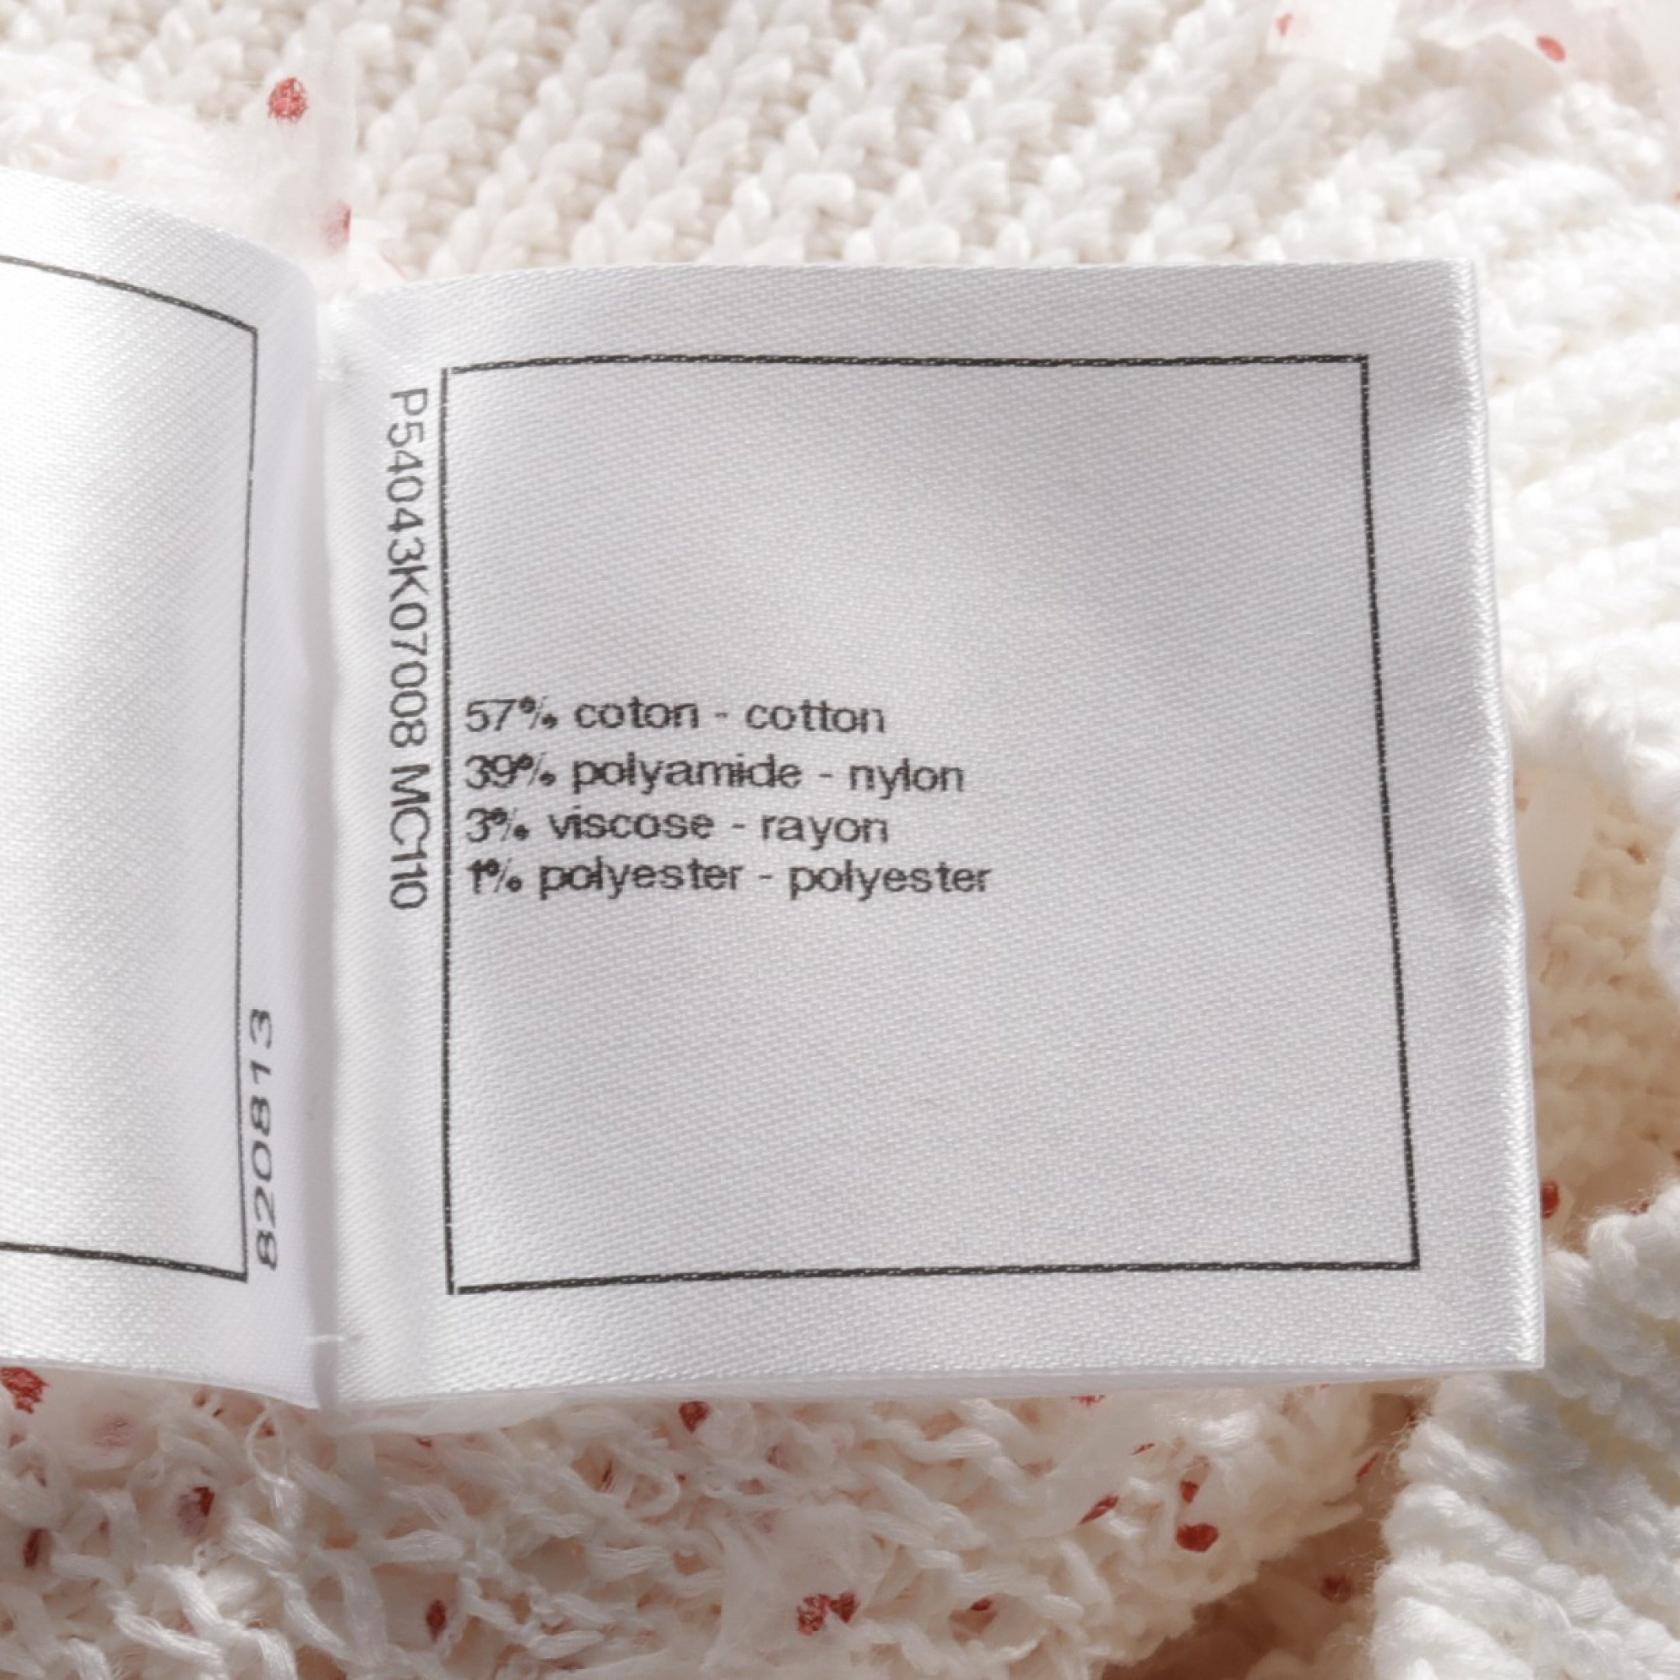 820813
P54043K07008 MC110
57% coton - cotton
39% polyamide - nylon
3% viscose - rayon
1% polyester - polyester